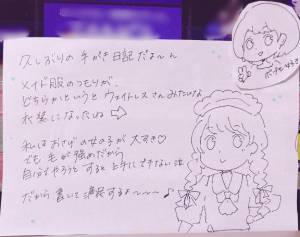 久しぶりの手がき日記だよ〜ん
メイド服のつもりが、
どちらかというとウェイトレスさんみたいな
衣装になったね ⇨
私はおさげの女の子が大すき♡
でも毛が強めだから
自分でやろうとすると上手にできない泣
だから書いて満足するよ〜〜〜♪